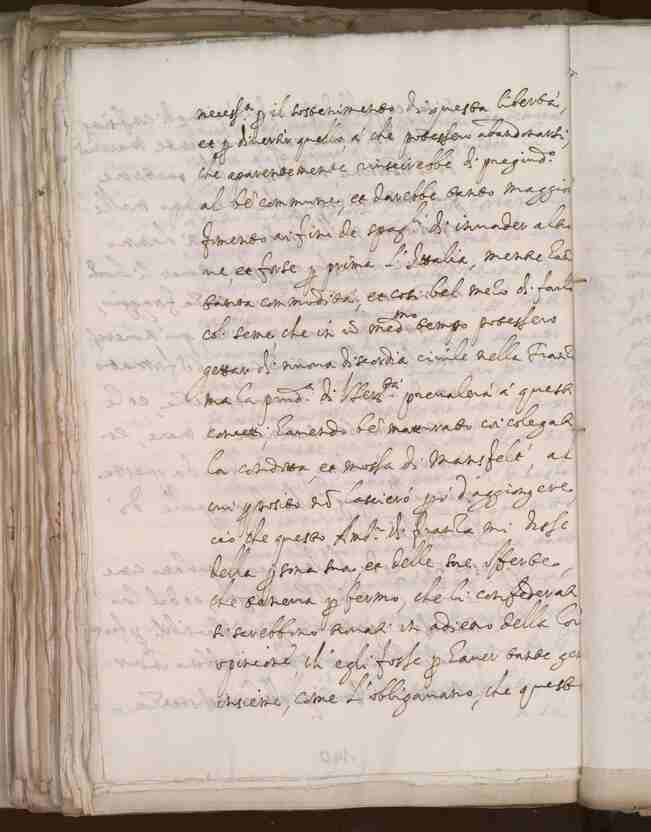 necess.a p il sostenimento di questa libertà,
et p divertir quello, à che potessero abandonarsi,
che aparentemente riuscirebbe di pregiud.o
al bẽ commune, et darebbe tanto maggior
fomento ai fini de Spag.li di invader altro
ne, et forse p prima l'Ittalia, mentre
tanta commodità, et così bel mezo di
col seme, che in un med.mo tempo potessero
gettar di nuova discordia civile nella Franc
ma la prud.a di prevalerà à questi
concetti, havendo bẽ matturato coi colegati
la condotta, et mossa di Mansfelt al
cui pposito nõ lascierò poi d'aggiongere
ciò che questo Amb.r di Franza mi disse
della psona sua, et delle sue offerte,
che teneva p fermo, che li confederati
si sarebbino tirati in adietro della
opinione, ch'egli fosse p haver tante gen
insieme, come s'obbligavano, che questo
140